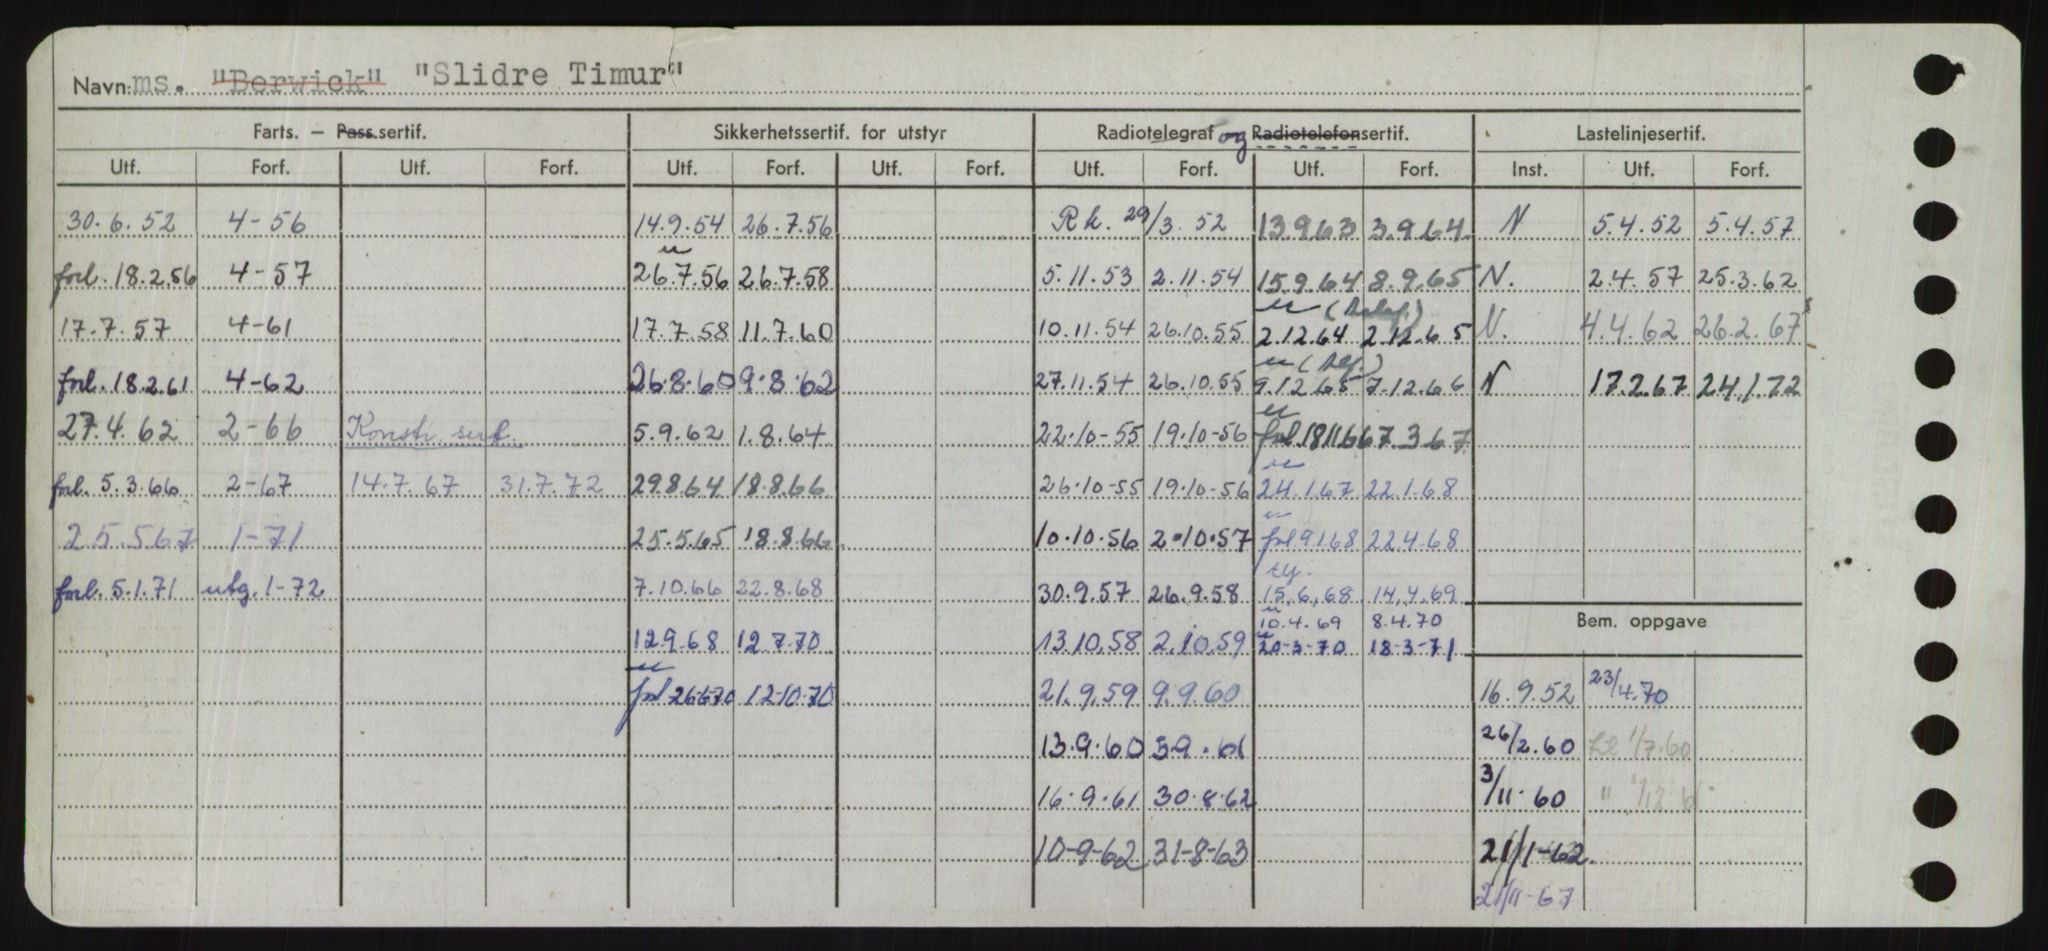 Navn: ms. "Berwick" "Slidre Timur"
Farts. — Pass. sertif. Sikkerhetssertif. for utstyr Radiotelegraf og Radiotelefonsertif. Lastelinjesertif.
Utf. Forf. Utf. Forf. Utf. Forf. Utf. Forf. Utf. Forf. Utf. Forf. Inst. Utf. Forf.
30.6.52 4-56 14.9.54 26.7.56 Rk. 29/3.52 13.9.63 3.9.64 N 5.4.52 5.4.57
forl. 18.2.56 4-57 26.7.56 26.7.58 5.11.53 2.11.54 15.9.64 8.9.65 N. 2.4.57 25.3.62
17.7.57 4-61 17.7.58 11.7.60 10.11.54 26.10.55 2.12.64 2.12.65 N. 4.4.62 26.2.67
forl. 18.2.61 4-62 26.8.60 9.8.62 27.11.54 26.10.55 9.12.65 7.12.66 N 17.2.67 24.1.72
27.4.62 2-66 Konstr. sert. 5.9.62 1.8.64 22.10-55 19.10-56 forl 18.11.66 7.3.67
forl. 5.3.66 2-67 14.7.67 31.7.72 29.8.64 18.8.66 26.10-55 19.10-56 24.1.67 22.1.68
25.5.67 1-71 25.5.65 18.8.66 10.10.56 2.10.57 forl 9.1.68 22.4.68
forl. 5.1.71 utg. 1-72 7.10.66 22.8.68 30.9.57 26.9.58 15.6.68 14.4.69
10.4.69 8.4.70 Bem. oppgave
12.9.68 12.7.70 13.10.58 2.10.59 20-3-70 18-3-71
forl 26.6.70 12.10.70 21.9.59 9.9.60 16.9.52 23/4.70
13.9.60 3.9.61 26/2.60 1/7.60
16.9.61 30.8.62 3/11.60 "
10-9-62 31-8-63 21/1-62
21/11-67